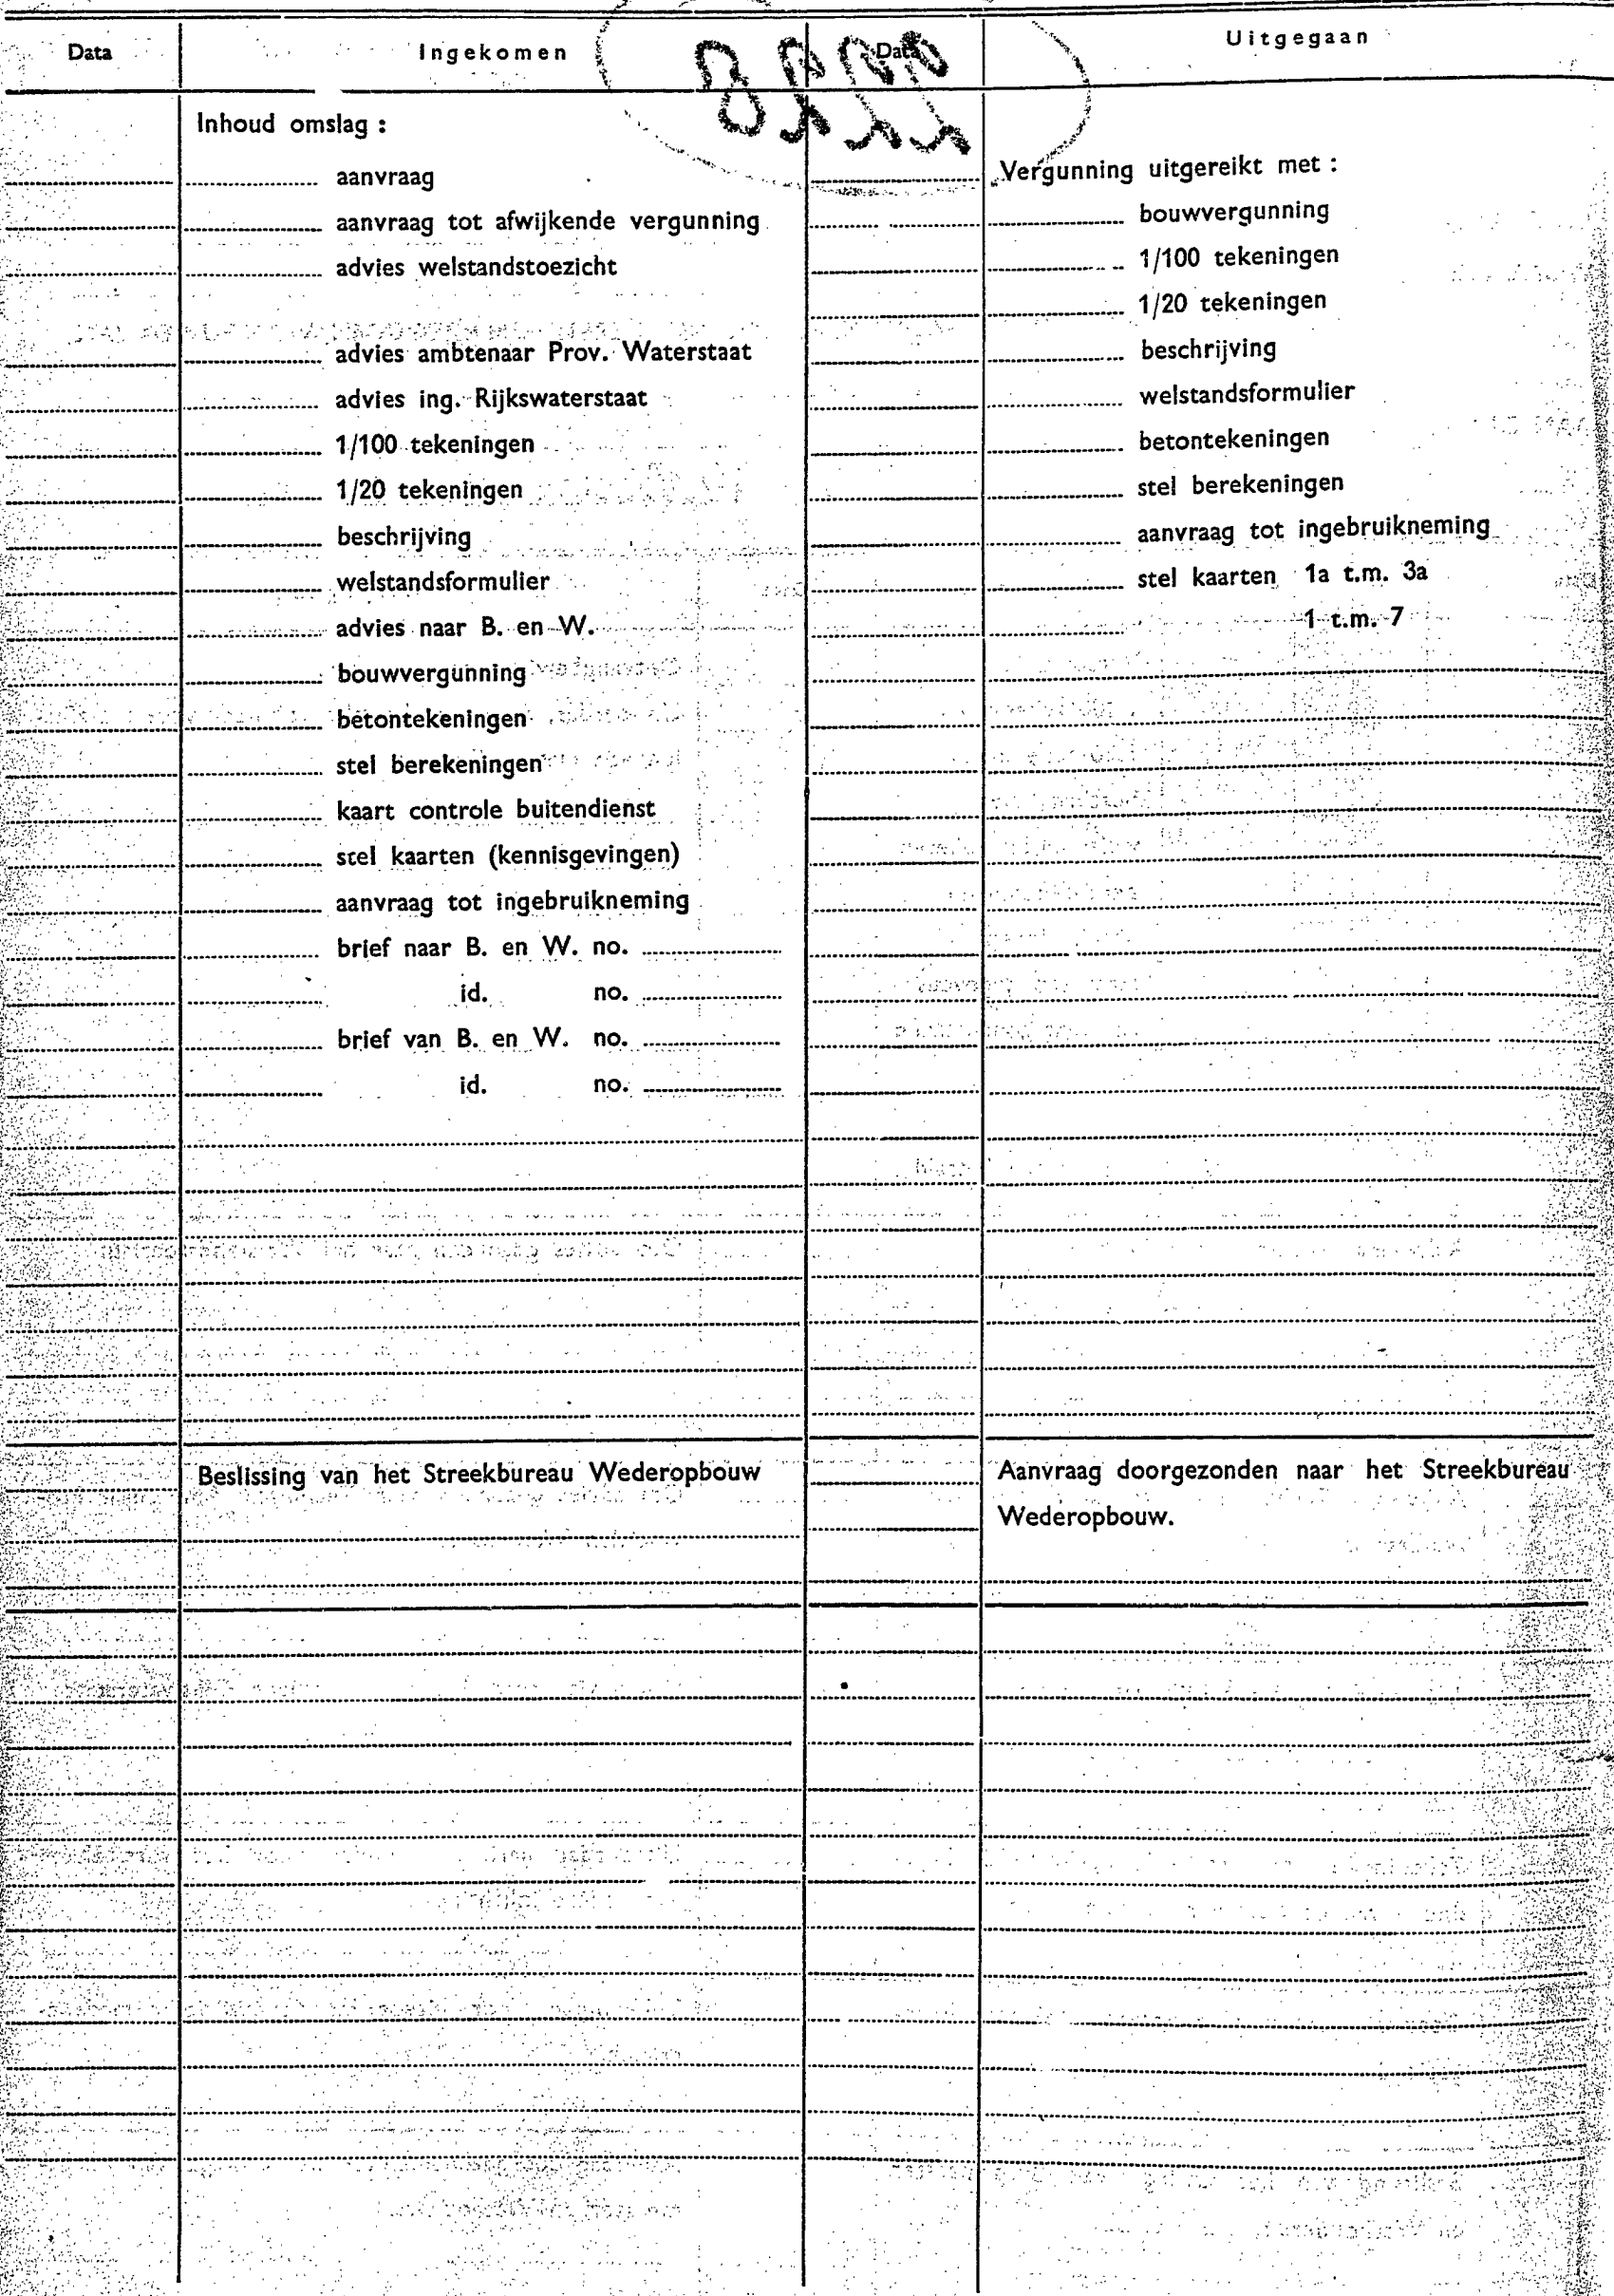 Data Ingekomen Data Uitgegaan
Inhoud omslag :
aanvraag
aanvraag tot afwijkende vergunning
advies welstandstoezicht
advies ambtenaar Prov. Waterstaat
advies ing. Rijkswaterstaat
1/100 tekeningen
1/20 tekeningen
beschrijving
welstandsformulier
advies naar B. en W.
bouwvergunning
betontekeningen
stel berekeningen
kaart controle buitendienst
stel kaarten (kennisgevingen)
aanvraag tot ingebruikneming
brief naar B. en W. no.
id. no.
brief van B. en W. no.
id. no.
Vergunning uitgereikt met :
bouwvergunning
1/100 tekeningen
1/20 tekeningen
beschrijving
welstandsformulier
betontekeningen
stel berekeningen
aanvraag tot ingebruikneming
stel kaarten 1a t.m. 3a
1 t.m. 7
Beslissing van het Streekbureau Wederopbouw
Aanvraag doorgezonden naar het Streekbureau
Wederopbouw.